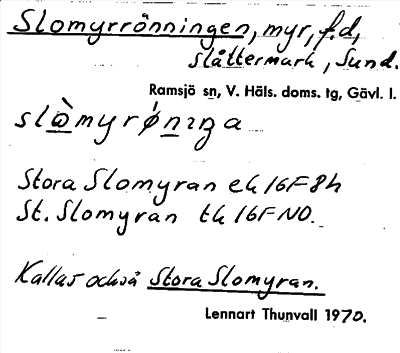 Slomyrrönningen, myr, f.d.
slåttermark, Sund.
Ramsjö sn, V. Häls. doms. tg, Gävl. l.
Stora Slomyran ek 16F8h
St. Slomyran tk 16FNO.
Kallas också Stora Slomyran.
Lennart Thunvall 1970.